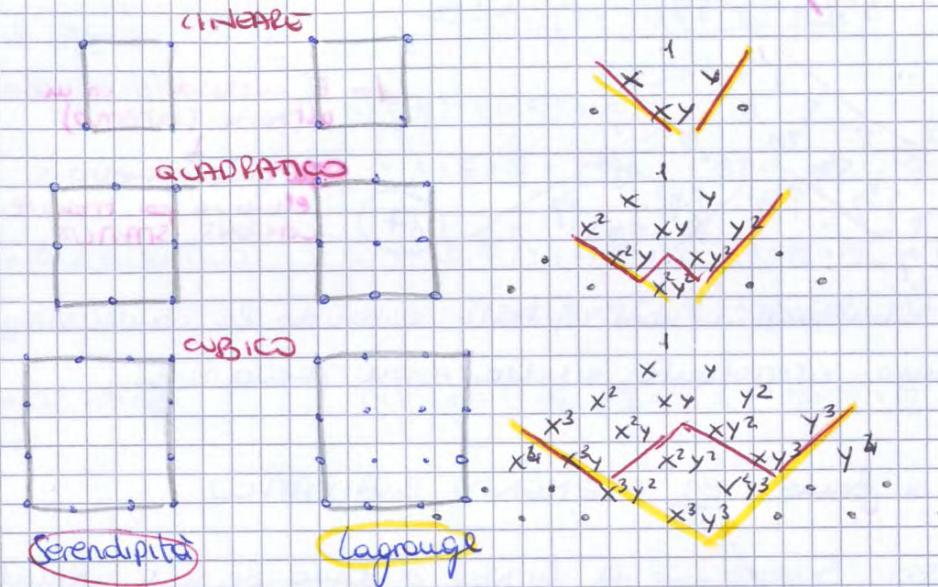 LINEARE
1
x y
xy
QUADRATICO
1
x y
x² xy y²
x²y xy²
x²y²
CUBICO
1
x y
x² xy y²
x³ x²y xy² y³
x⁴ x³y x²y² xy³ y⁴
x³y² x²y³
x³y³
Serendipità Lagrange